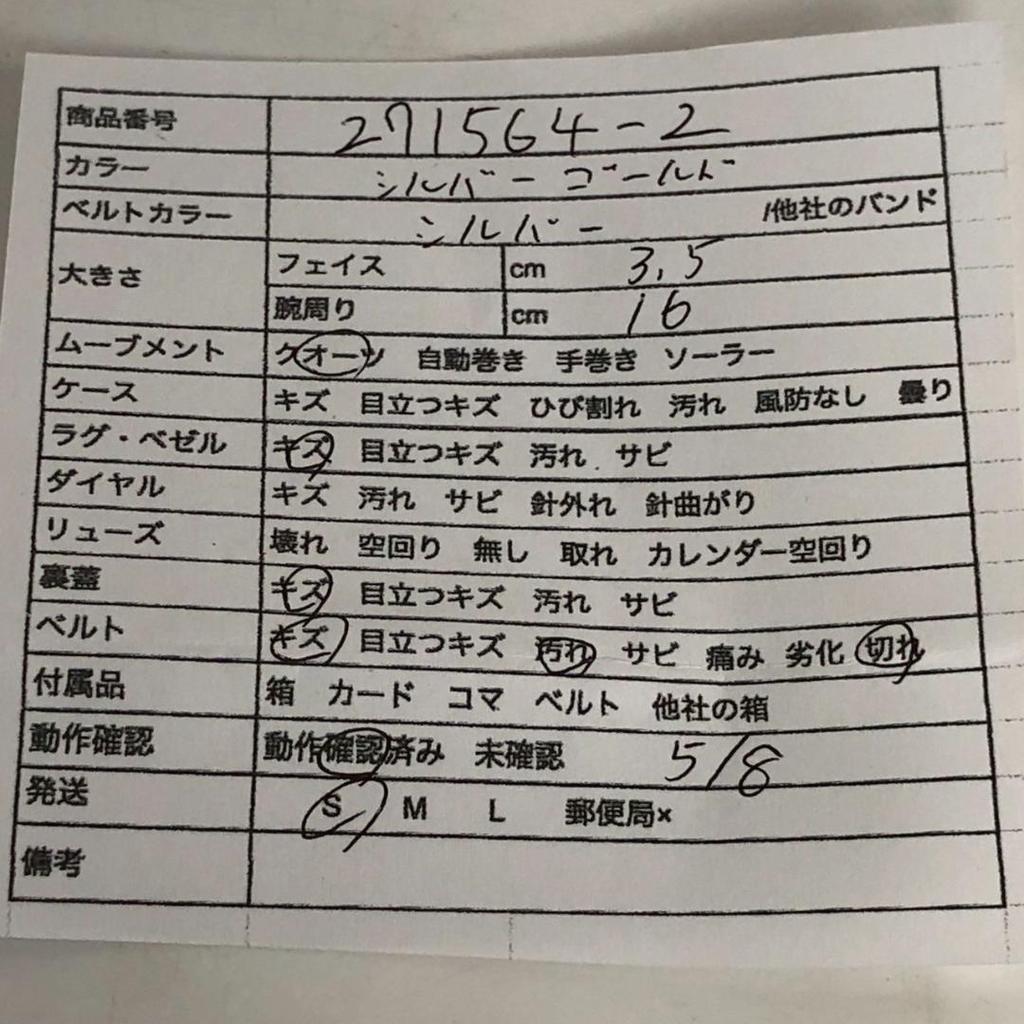 商品番号 271564-2
カラー シルバーゴールド
ベルトカラー シルバー /他社のバンド
大きさ フェイス cm 3.5
腕周り cm 16
ムーブメント クオーツ 自動巻き 手巻き ソーラー
ケース キズ 目立つキズ ひび割れ 汚れ 風防なし 曇り
ラグ・ベゼル キズ 目立つキズ 汚れ サビ
ダイヤル キズ 汚れ サビ 針外れ 針曲がり
リューズ 壊れ 空回り 無し 取れ カレンダー空回り
裏蓋 キズ 目立つキズ 汚れ サビ
ベルト キズ 目立つキズ 汚れ サビ 痛み 劣化 切れ
付属品 箱 カード コマ ベルト 他社の箱
動作確認 動作確認済み 未確認 5/8
発送 S M L 郵便局×
備考